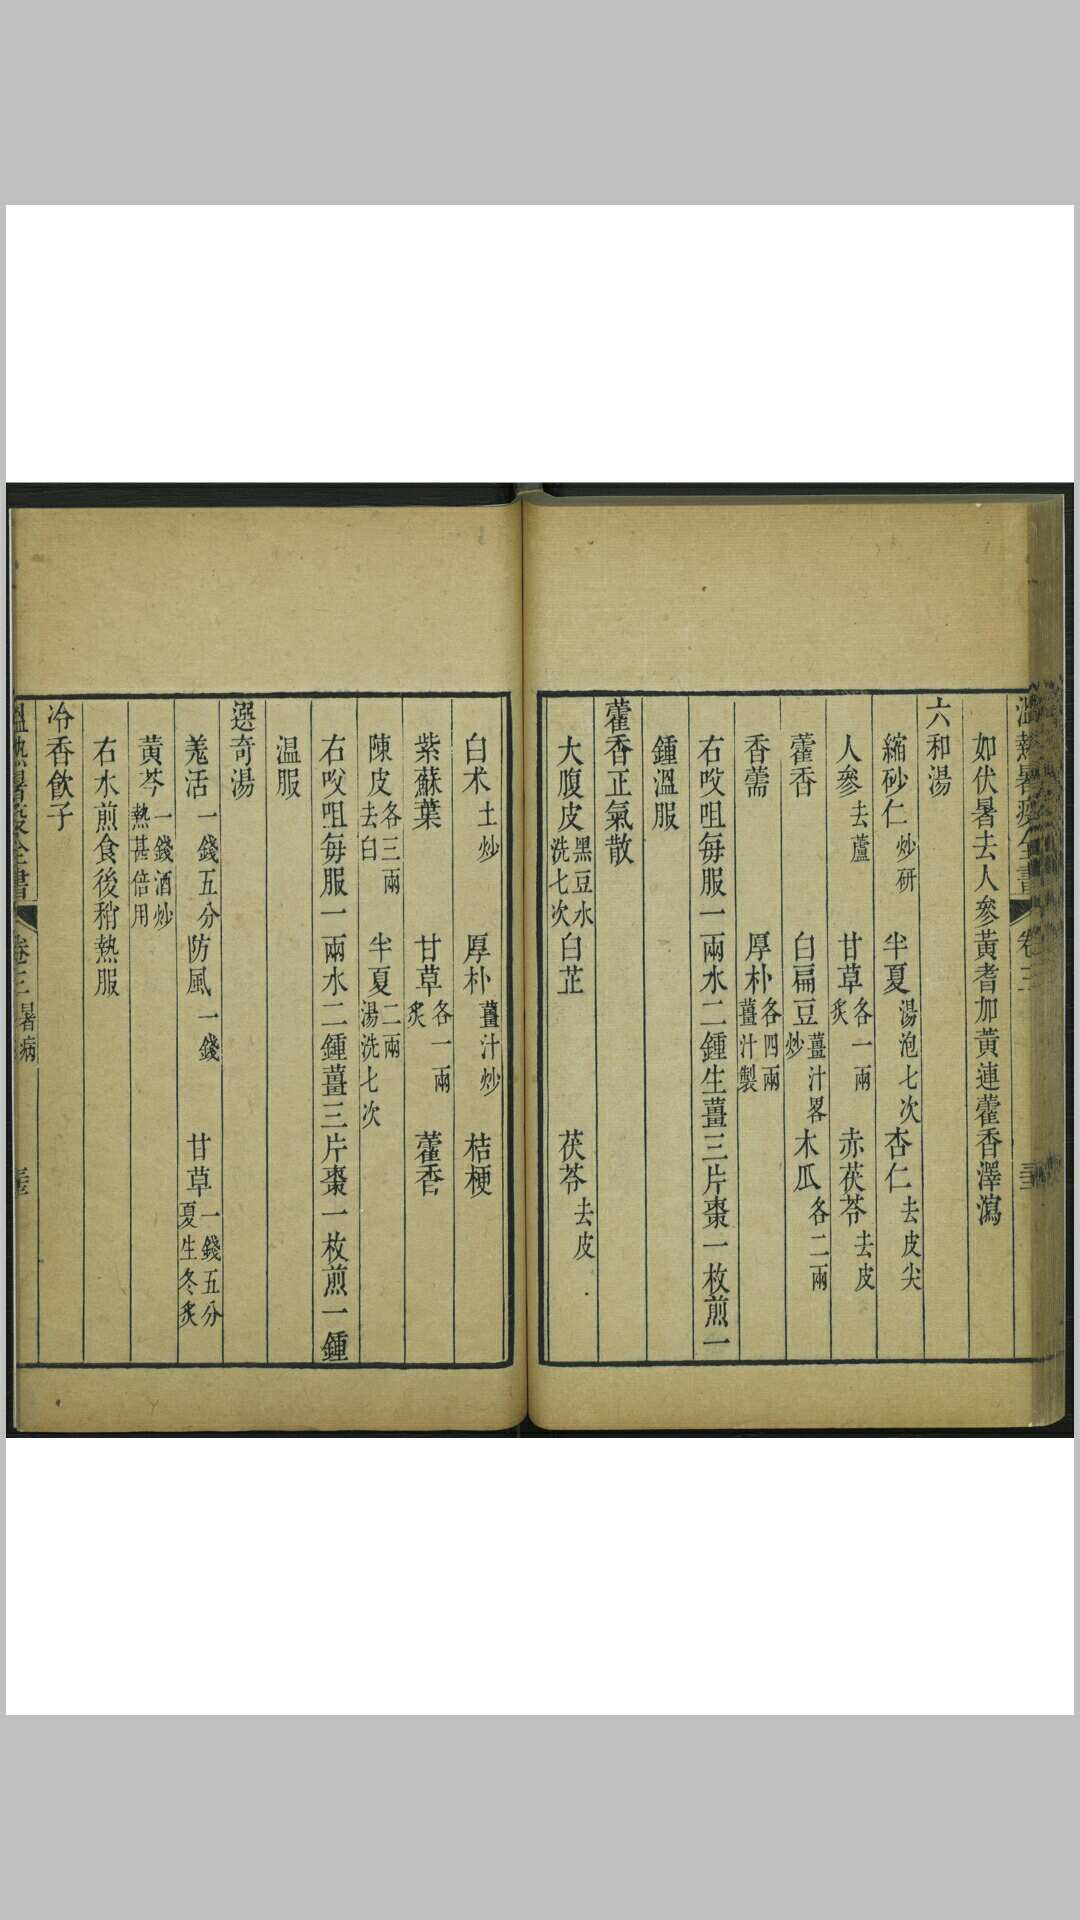 溫熱暑疫全書 卷三
如伏暑去人參黃耆加黃連藿香澤瀉
六和湯
縮砂仁炒研 半夏湯泡七次 杏仁去皮尖
人參去蘆 甘草各一兩炙 赤茯苓去皮
藿香 白扁豆薑汁畧炒 木瓜各二兩
香薷 厚朴各四兩薑汁製
右㕮咀每服一兩水二鍾生薑三片棗一枚煎一
鍾溫服
藿香正氣散
大腹皮黑豆水洗七次 白芷 茯苓去皮
白朮土炒 厚朴薑汁炒 桔梗
紫蘇葉 甘草各一兩炙 藿香
陳皮各三兩去白 半夏二兩湯洗七次
右㕮咀每服一兩水二鍾薑三片棗一枚煎一鍾
温服
選奇湯
羗活一錢五分 防風一錢 甘草一錢五分夏生冬炙
黃芩一錢酒炒熱甚倍用
右水煎食後稍熱服
冷香飲子
溫熱暑疫全書 卷三 暑病